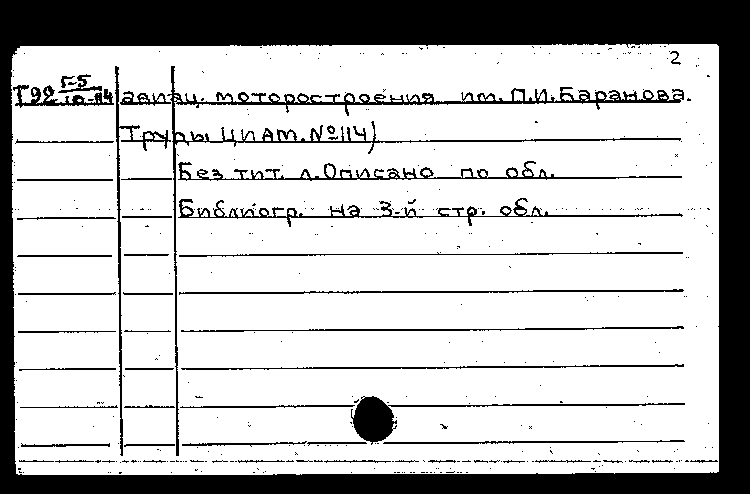 2
Т92 Г-5 авиац. моторостроения им. П.И.Баранова.
Труды ЦИАМ.№114)
Без тит. л.Описано по обл.
Библиогр. на 3-й стр. обл.